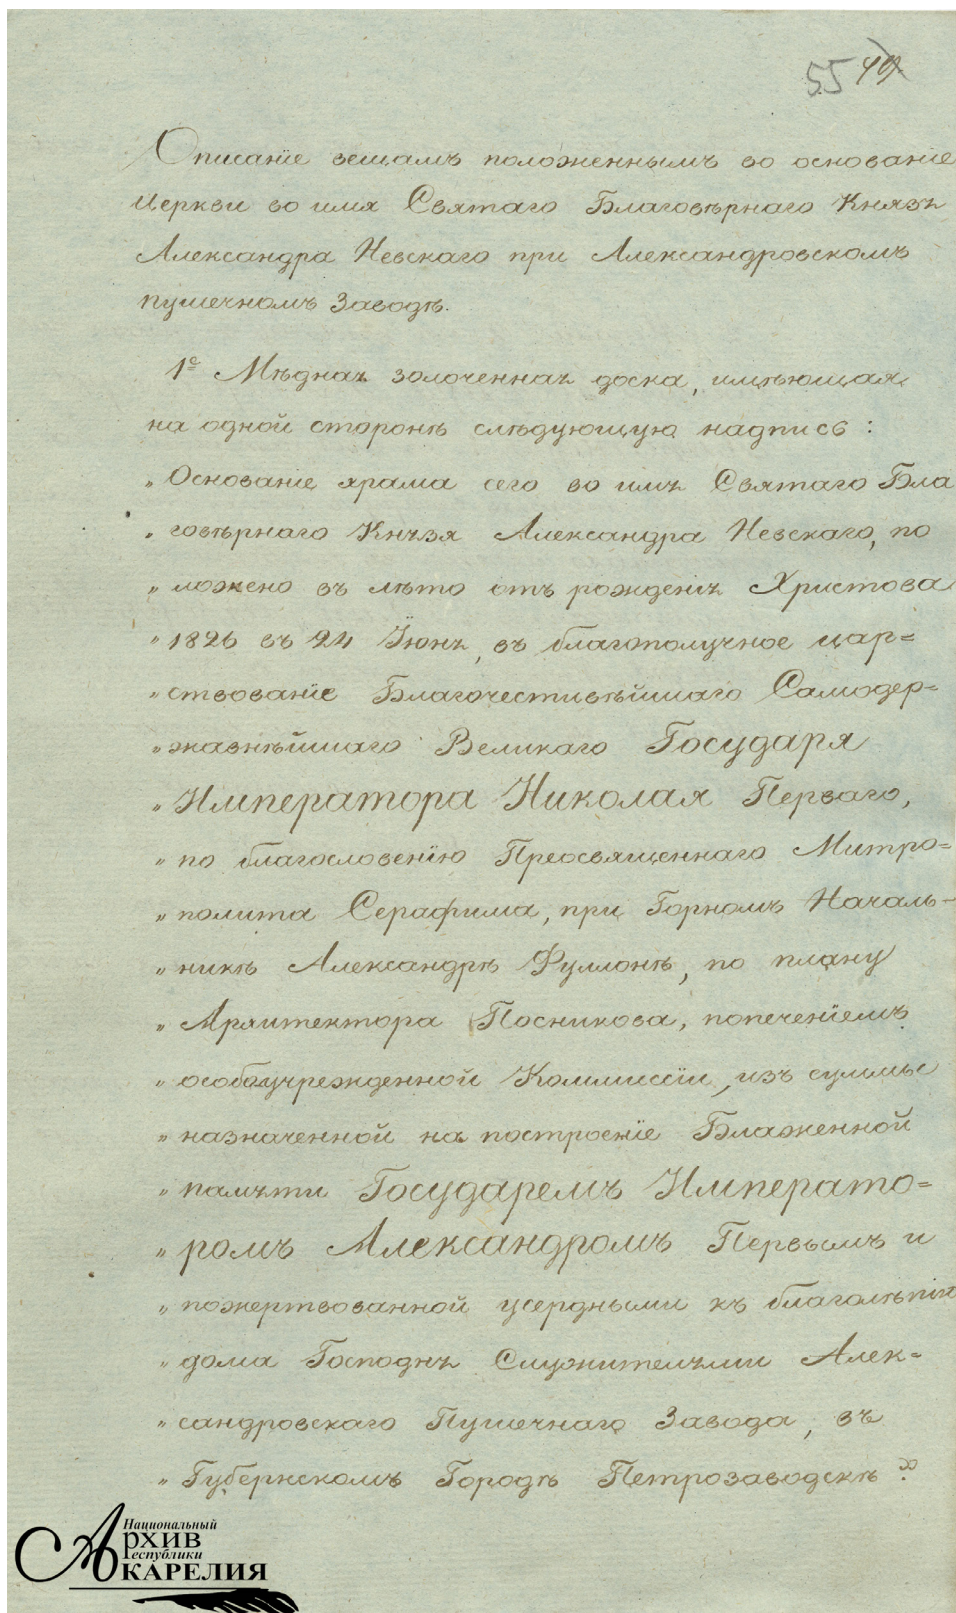 55 49
Описанїе вещамъ положеннымъ во основанїе
Церкви во имя Святаго Благовѣрнаго Князя
Александра Невскаго при Александровскомъ
пушечномъ Заводѣ.
1е Мѣдная золоченная доска, имѣющая
на одной сторонѣ слѣдующую надпись:
„ Основанїе храма сего во имя Святаго Бла
„ говѣрнаго Князя Александра Невскаго, по
„ ложено въ лѣто отъ рожденія Христова
„ 1826 въ 24 Їюня, въ благополучное цар=
„ ствованїе Благочестивѣйшаго Самодер=
„ жавнѣйшаго Великаго Государя
„ Императора Николая Перваго,
„ по благословенїю Преосвященнаго Митро=
„ полита Серафима, при Горномъ Началь-
„ никѣ Александрѣ Фуллонѣ, по плану
„ Архитектора Посникова, попеченїемъ
„ особоучрежденной Коммиссїи, изъ суммы
„ назначенной на построенїе Блаженной
„ памяти Государемъ Императо=
„ ромъ Александромъ Первымъ и
„ пожертвованной усердными къ благолѣпію
„ дома Господня Служителями Алек=
„ сандровскаго Пушечнаго Завода, въ
„ Губернскомъ Городѣ Петрозаводскѣ."
Национальный
Архив
Республики
Карелия